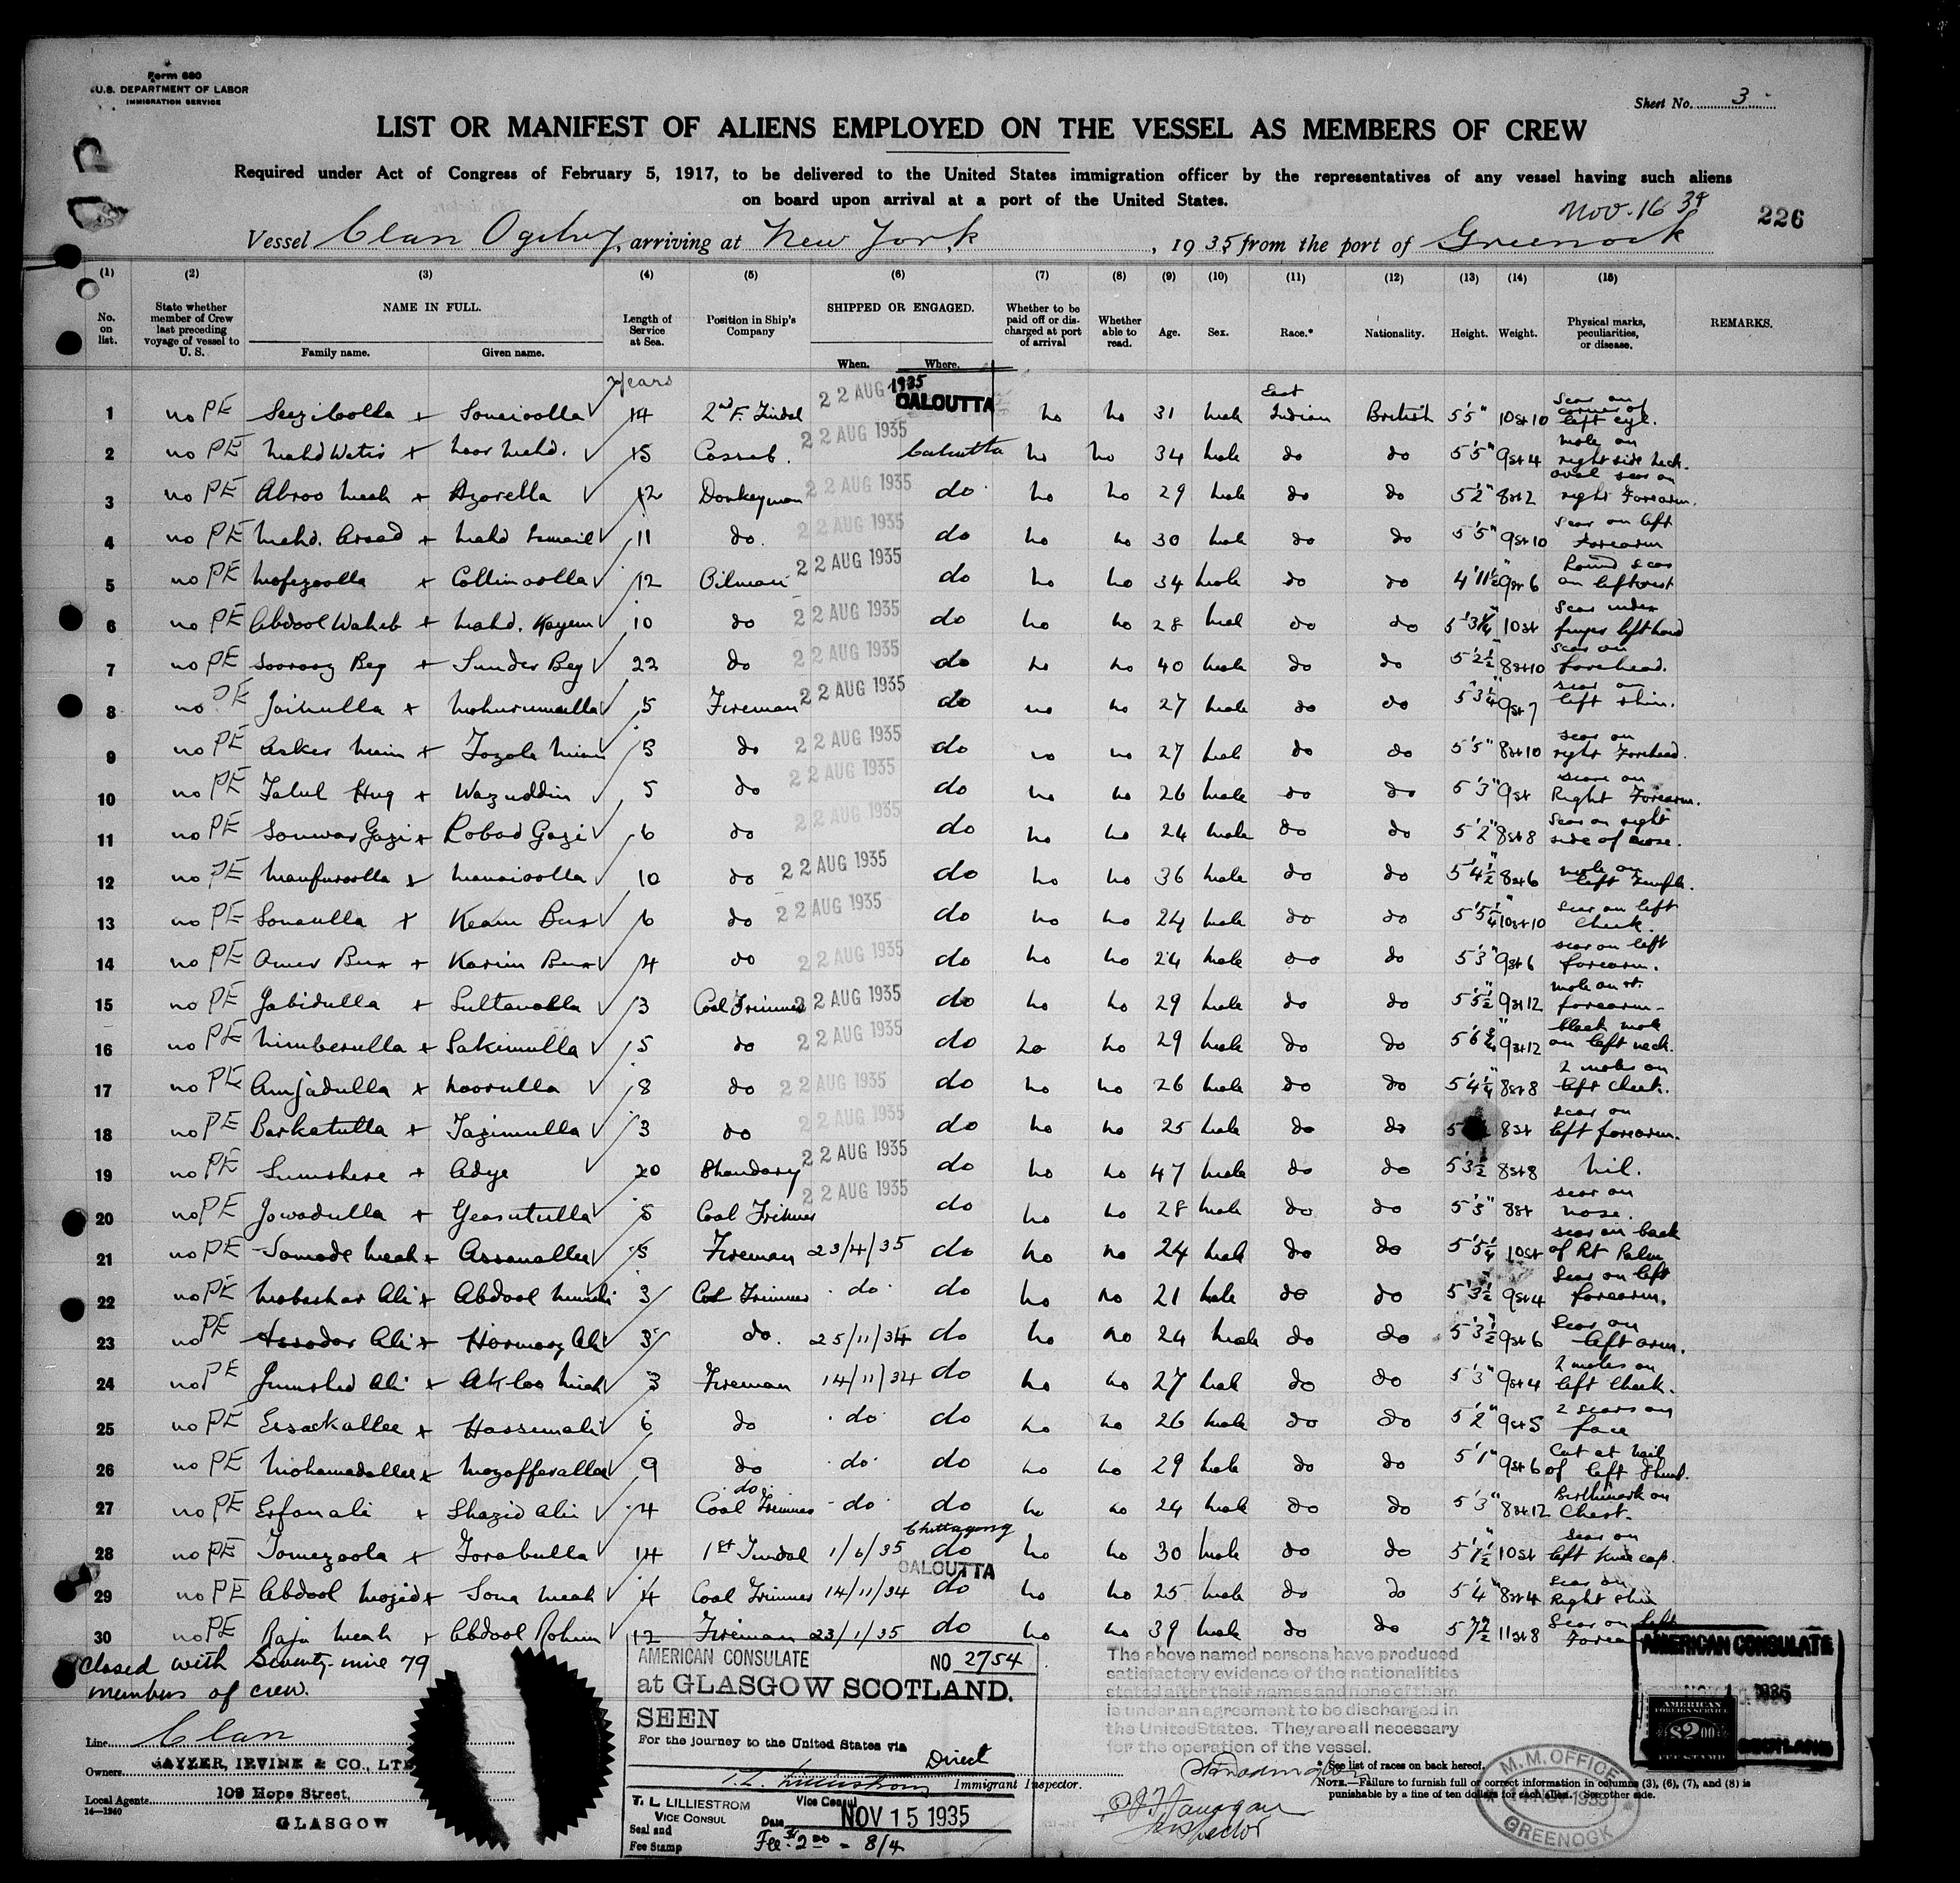 Form 680
U.S. DEPARTMENT OF LABOR
IMMIGRATION SERVICE
Sheet No. 3
LIST OR MANIFEST OF ALIENS EMPLOYED ON THE VESSEL AS MEMBERS OF CREW
Required under Act of Congress of February 5, 1917, to be delivered to the United States immigration officer by the representatives of any vessel having such aliens
on board upon arrival at a port of the United States.
Nov. 16
226
Vessel Clan Ogilvy, arriving at New York, 1935 from the port of Greenock
(1) (2) (3) (4) (5) (6) (7) (8) (9) (10) (11) (12) (13) (14) (15)
No. on list. State whether member of Crew last preceding voyage of vessel to U. S. NAME IN FULL. Family name. Given name. Length of Service at Sea. Position in Ship's Company SHIPPED OR ENGAGED. When. Where. Whether to be paid off or discharged at port of arrival Whether able to read. Age. Sex. Race.* Nationality. Height. Weight. Physical marks, peculiarities, or disease. REMARKS.
years
1 no PE 14 2nd F. Tindal 22 AUG 1935 CALCUTTA no no 31 male East Indian British 5'5" 10st10 Scar on corner of left eye.
2 no PE 15 Cassab. 22 AUG 1935 Calcutta no no 34 male do do 5'5" 9st4 mole on right side neck.
3 no PE Abroo Meah + Azorella 12 Donkeyman 22 AUG 1935 do no no 29 male do do 5'2" 8st2 oval scar on right Forearm.
4 no PE Mahd. Assad + Mahd Ismail 11 do. 22 AUG 1935 do no no 30 male do do 5'5" 9st10 Scar on left Forearm
5 no PE Mofezoolla + Collimoolla 12 Oilman 22 AUG 1935 do no no 34 male do do 4'11½ 9st6 Round scar on left wrist
6 no PE Abdool Waheb + Mahd. Kayem 10 do 22 AUG 1935 do no no 28 male do do 10st Scar index finger left hand
7 no PE Soorooz Beg + Sunder Beg 22 do 22 AUG 1935 do no no 40 male do do 5'2½ 8st10 Scar on forehead.
8 no PE Jainulla + 5 Fireman 22 AUG 1935 do no no 27 male do do 5'3¼ 9st7 scar on left shin.
9 no PE Asker Mein + Fozole Mian 5 do 22 AUG 1935 do no no 27 male do do 5'5" 8st10 scar on right Forehead.
10 no PE Falul Huq + Wazuddin 5 do 22 AUG 1935 do no no 26 male do do 5'3" 9st scare on Right Forearm.
11 no PE Sonwar Gazi + Robad Gazi 6 do 22 AUG 1935 do no no 24 male do do 5'2" 8st8 Scar on right side of nose.
12 no PE Manfuroolla + Manaioolla 10 do 22 AUG 1935 do no no 36 male do do 5'4½ 8st6 mole on left temple.
13 no PE Sonaulla + Keam Bux 6 do 22 AUG 1935 do no no 24 male do do 5'5¼ 10st10 Scar on left Cheek.
14 no PE Amer Bux + Karim Bux 4 do 22 AUG 1935 do no no 24 male do do 5'3" 9st6 scar on left forearm.
15 no PE Jabidulla + Sultanalla 3 Coal Trimmer 22 AUG 1935 do no no 29 male do do 5'5½ 9st12 mole on rt. forearm
16 no PE Nimberulla + Sakimulla 5 do 22 AUG 1935 do no no 29 male do do 9st12 black mole on left neck.
17 no PE Amjadulla + Noorulla 8 do 22 AUG 1935 do no no 26 male do do 5'4¼ 8st8 2 moles on left cheek.
18 no PE Barkatulla + Tazimulla 3 do 22 AUG 1935 do no no 25 male do do 8st scar on left forearm.
19 no PE Sumshere + Adye 20 Bhandary 22 AUG 1935 do no no 47 male do do 5'3½ 8st8 nil.
20 no PE Jowadulla + Yeasutulla 5 Coal Trimmer 22 AUG 1935 do no no 28 male do do 5'3" 8st scar on nose.
21 no PE Samode Meah + Assanallee 5 Fireman 23/4/35 do no no 24 male do do 5'5¼ 10st scar on back of Rt Palm
22 no PE Mobashar Ali + Abdool 3 Coal Trimmer do do no no 21 male do do 5'3½ 9st4 Scar on left forearm.
23 no PE Assador Ali + Hormozy Ali 3 do. 25/11/34 do no no 24 male do do 5'3½ 9st6 Scar on left arm.
24 no PE Jumshed Ali + Akloo Miah 3 Fireman 14/11/34 do no no 27 male do do 5'3" 9st4 2 moles on left Cheek.
25 no PE Essackallee + Hassumali 6 do do do no no 26 male do do 5'2" 9st5 2 scars on face
26 no PE Mohamadallee + Mozafferallee 9 do do do no no 29 male do do 5'1" 9st6 Cut at nail of left Thumb.
27 no PE Erfanali + Shazid Ali 4 do Coal Trimmer do do no no 24 male do do 5'3" 8st12 Birthmark on Chest.
28 no PE Tomezoola + Torabulla 14 1st Tindal 1/6/35 Chittagong do no no 30 male do do 5'7½ 10st Scar on left Knee cap.
29 no PE Abdool Mojid + Sona Meah 4 Coal Trimmer 14/11/34 CALCUTTA do no no 25 male do do 5'4" 8st4 Scar on Right Shin
30 no PE Raja Meah + Abdool Rohim 12 Fireman 23/1/35 do no no 39 male do do 11st8 Scar on left
Closed with Seventy-nine 79
members of crew.
Line Clan
Owners CAYZER, IRVINE & CO., LTD
Local Agents 109 Hope Street,
14—1240
GLASGOW
AMERICAN CONSULATE NO 2754
at GLASGOW SCOTLAND.
SEEN
For the journey to the United States via Direct
Immigrant Inspector.
T. L. LILLIESTROM Vice Consul
VICE CONSUL Date NOV 15 1935
Seal and
Fee Stamp Fee: $2.00 = 8/4
The above named persons have produced
satisfactory evidence of the nationalities
stated after their names and none of them
is under an agreement to be discharged in
the United States. They are all necessary
for the operation of the vessel.
* See list of races on back hereof.
NOTE.—Failure to furnish full or correct information in columns (3), (6), (7), and (8) is
punishable by a fine of ten dollars for each alien. See other side.
Inspector
M. M. OFFICE
14 NOV 1935
GREENOCK
AMERICAN CONSULATE
AMERICAN
FOREIGN SERVICE
$2.00
FEE STAMP
SCOTLAND